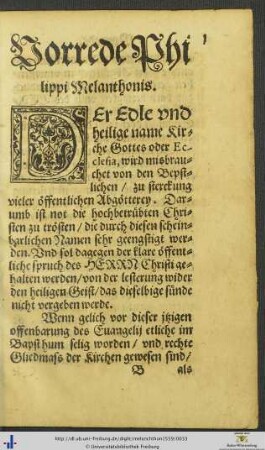 Vorrede Phi
lippi Melanthonis.
DEr Edle vnd
heilige name Kir-
che Gottes oder Ec-
clesia, wird misbrau-
chet von den Bepst-
lichen / zu sterckung
vieler öffentlichen Abgötterey. Dar-
umb ist not die hochbetrübten Chri-
sten zu trösten / die durch diesen schein-
barlichen Namen sehr geengstigt wer-
den. Vnd sol dagegen der klare öffent-
liche spruch des HERRN Christi ge-
halten werden / von der lesterung wider
den heiligen Geist / das dieselbige sünde
nicht vergeben werde.
Wenn gelich vor dieser jtzigen
offenbarung des Euangelij etliche im
Bapsthum selig worden / vnd rechte
Gliedmass der Kirchen gewesen sind /
B als
© Universitätsbibliothek Freiburg
Baden-Württemberg